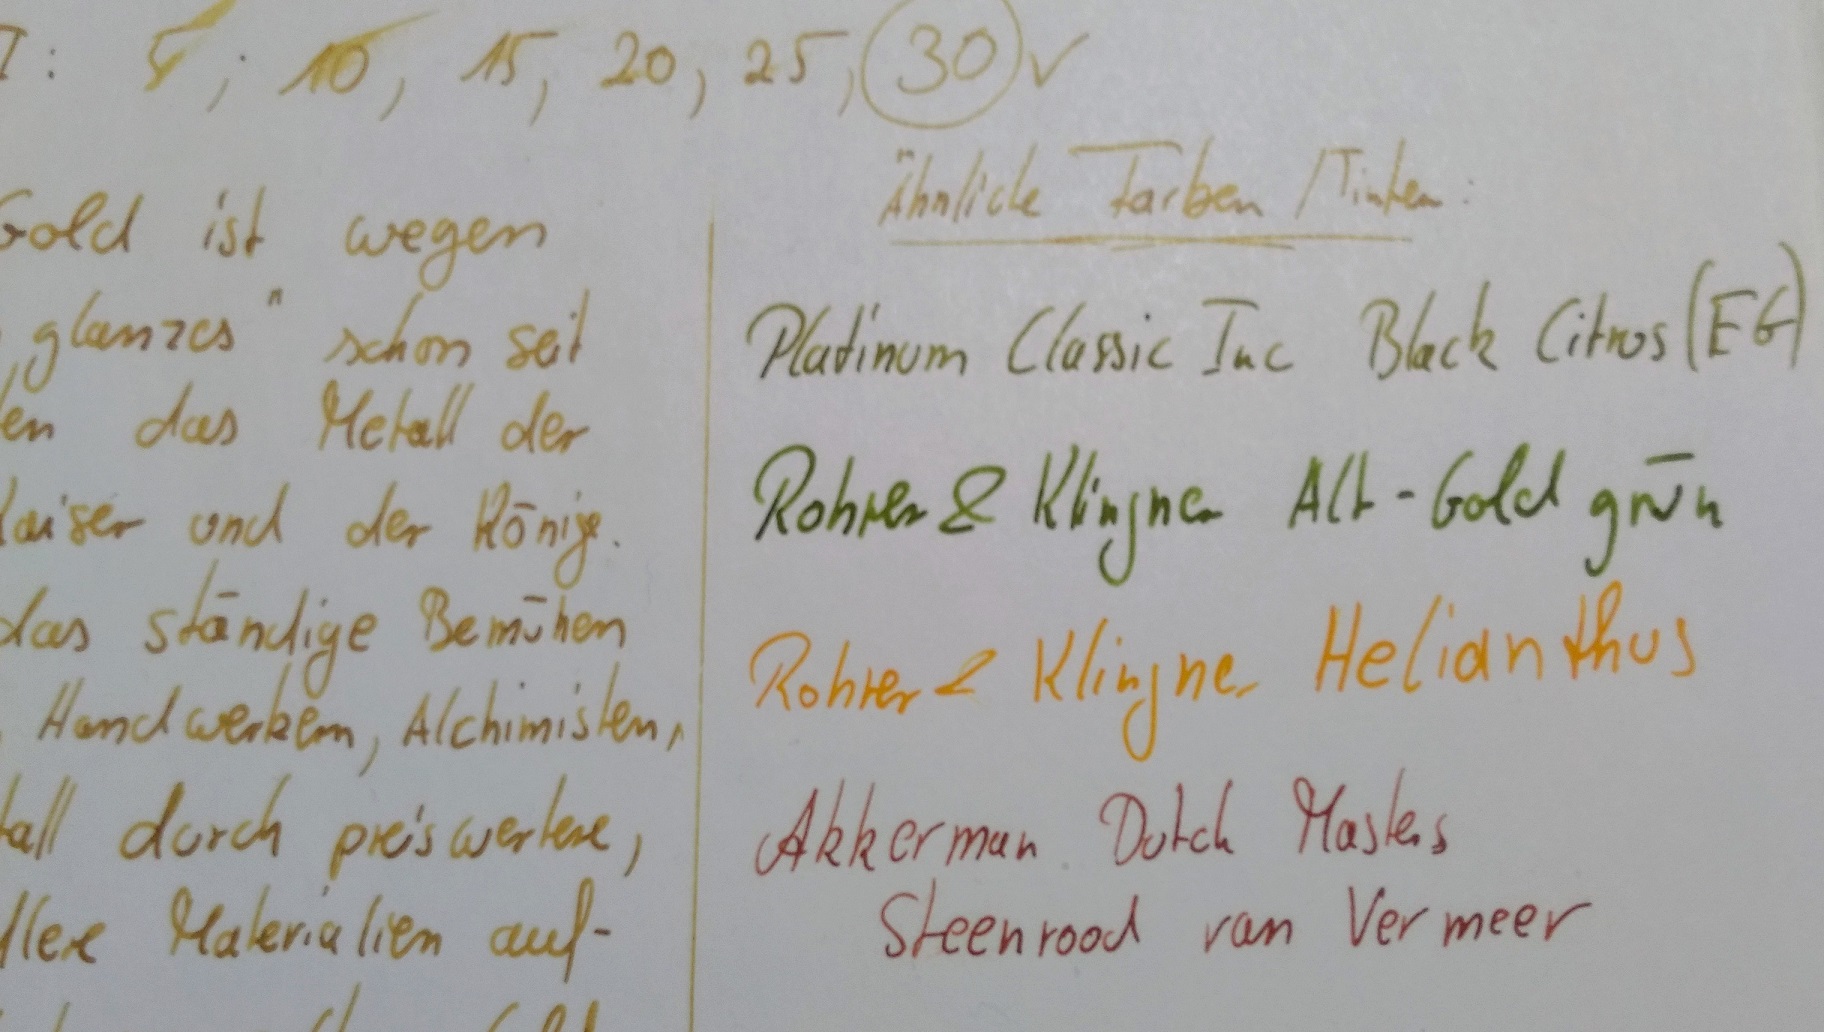 : 5, 10, 15, 20, 25, 30 ✓
Ähnliche Farben / Tinten:
Gold ist wegen
„glanzes" schon seit
en das Metall der
Kaiser und der Könige.
das ständige Bemühen
Handwerkern, Alchimisten,
tall durch preiswertere,
llere Materialien auf-
Platinum Classic Inc Black Citrus (EG)
Rohrer & Klingner Alt-Gold grün
Rohrer & Klingner Helianthus
Akkerman Dutch Masters
Steenrood van Vermeer